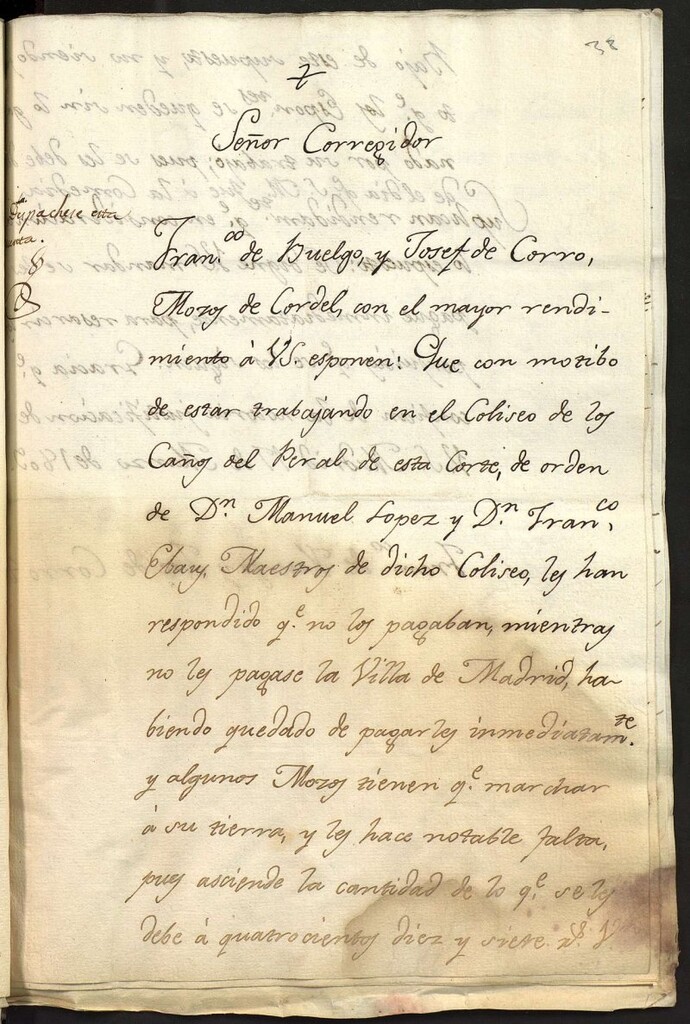 38
Señor Corregidor
Despachese esta
Fran.co de Buelgo, y Josef de Corro,
Mozos de Cordel, con el mayor rendi-
miento à VS. esponen: Que con motibo
de estar trabajando en el Coliseo de los
Caños del Peral de esta Corte, de orden
de Dn. Manuel Lopez y Dn. Fran.co
Maestros de dicho Coliseo, les han
respondido q.e no los pagaban, mientras
no les pagase la Villa de Madrid, ha-
biendo quedado de pagarles inmediatam.te
y algunos Mozos tienen q.e marchar
à su tierra, y les hace notable falta,
pues asciende la cantidad de lo q.e se les
debe à quatrocientos diez y siete rs. V